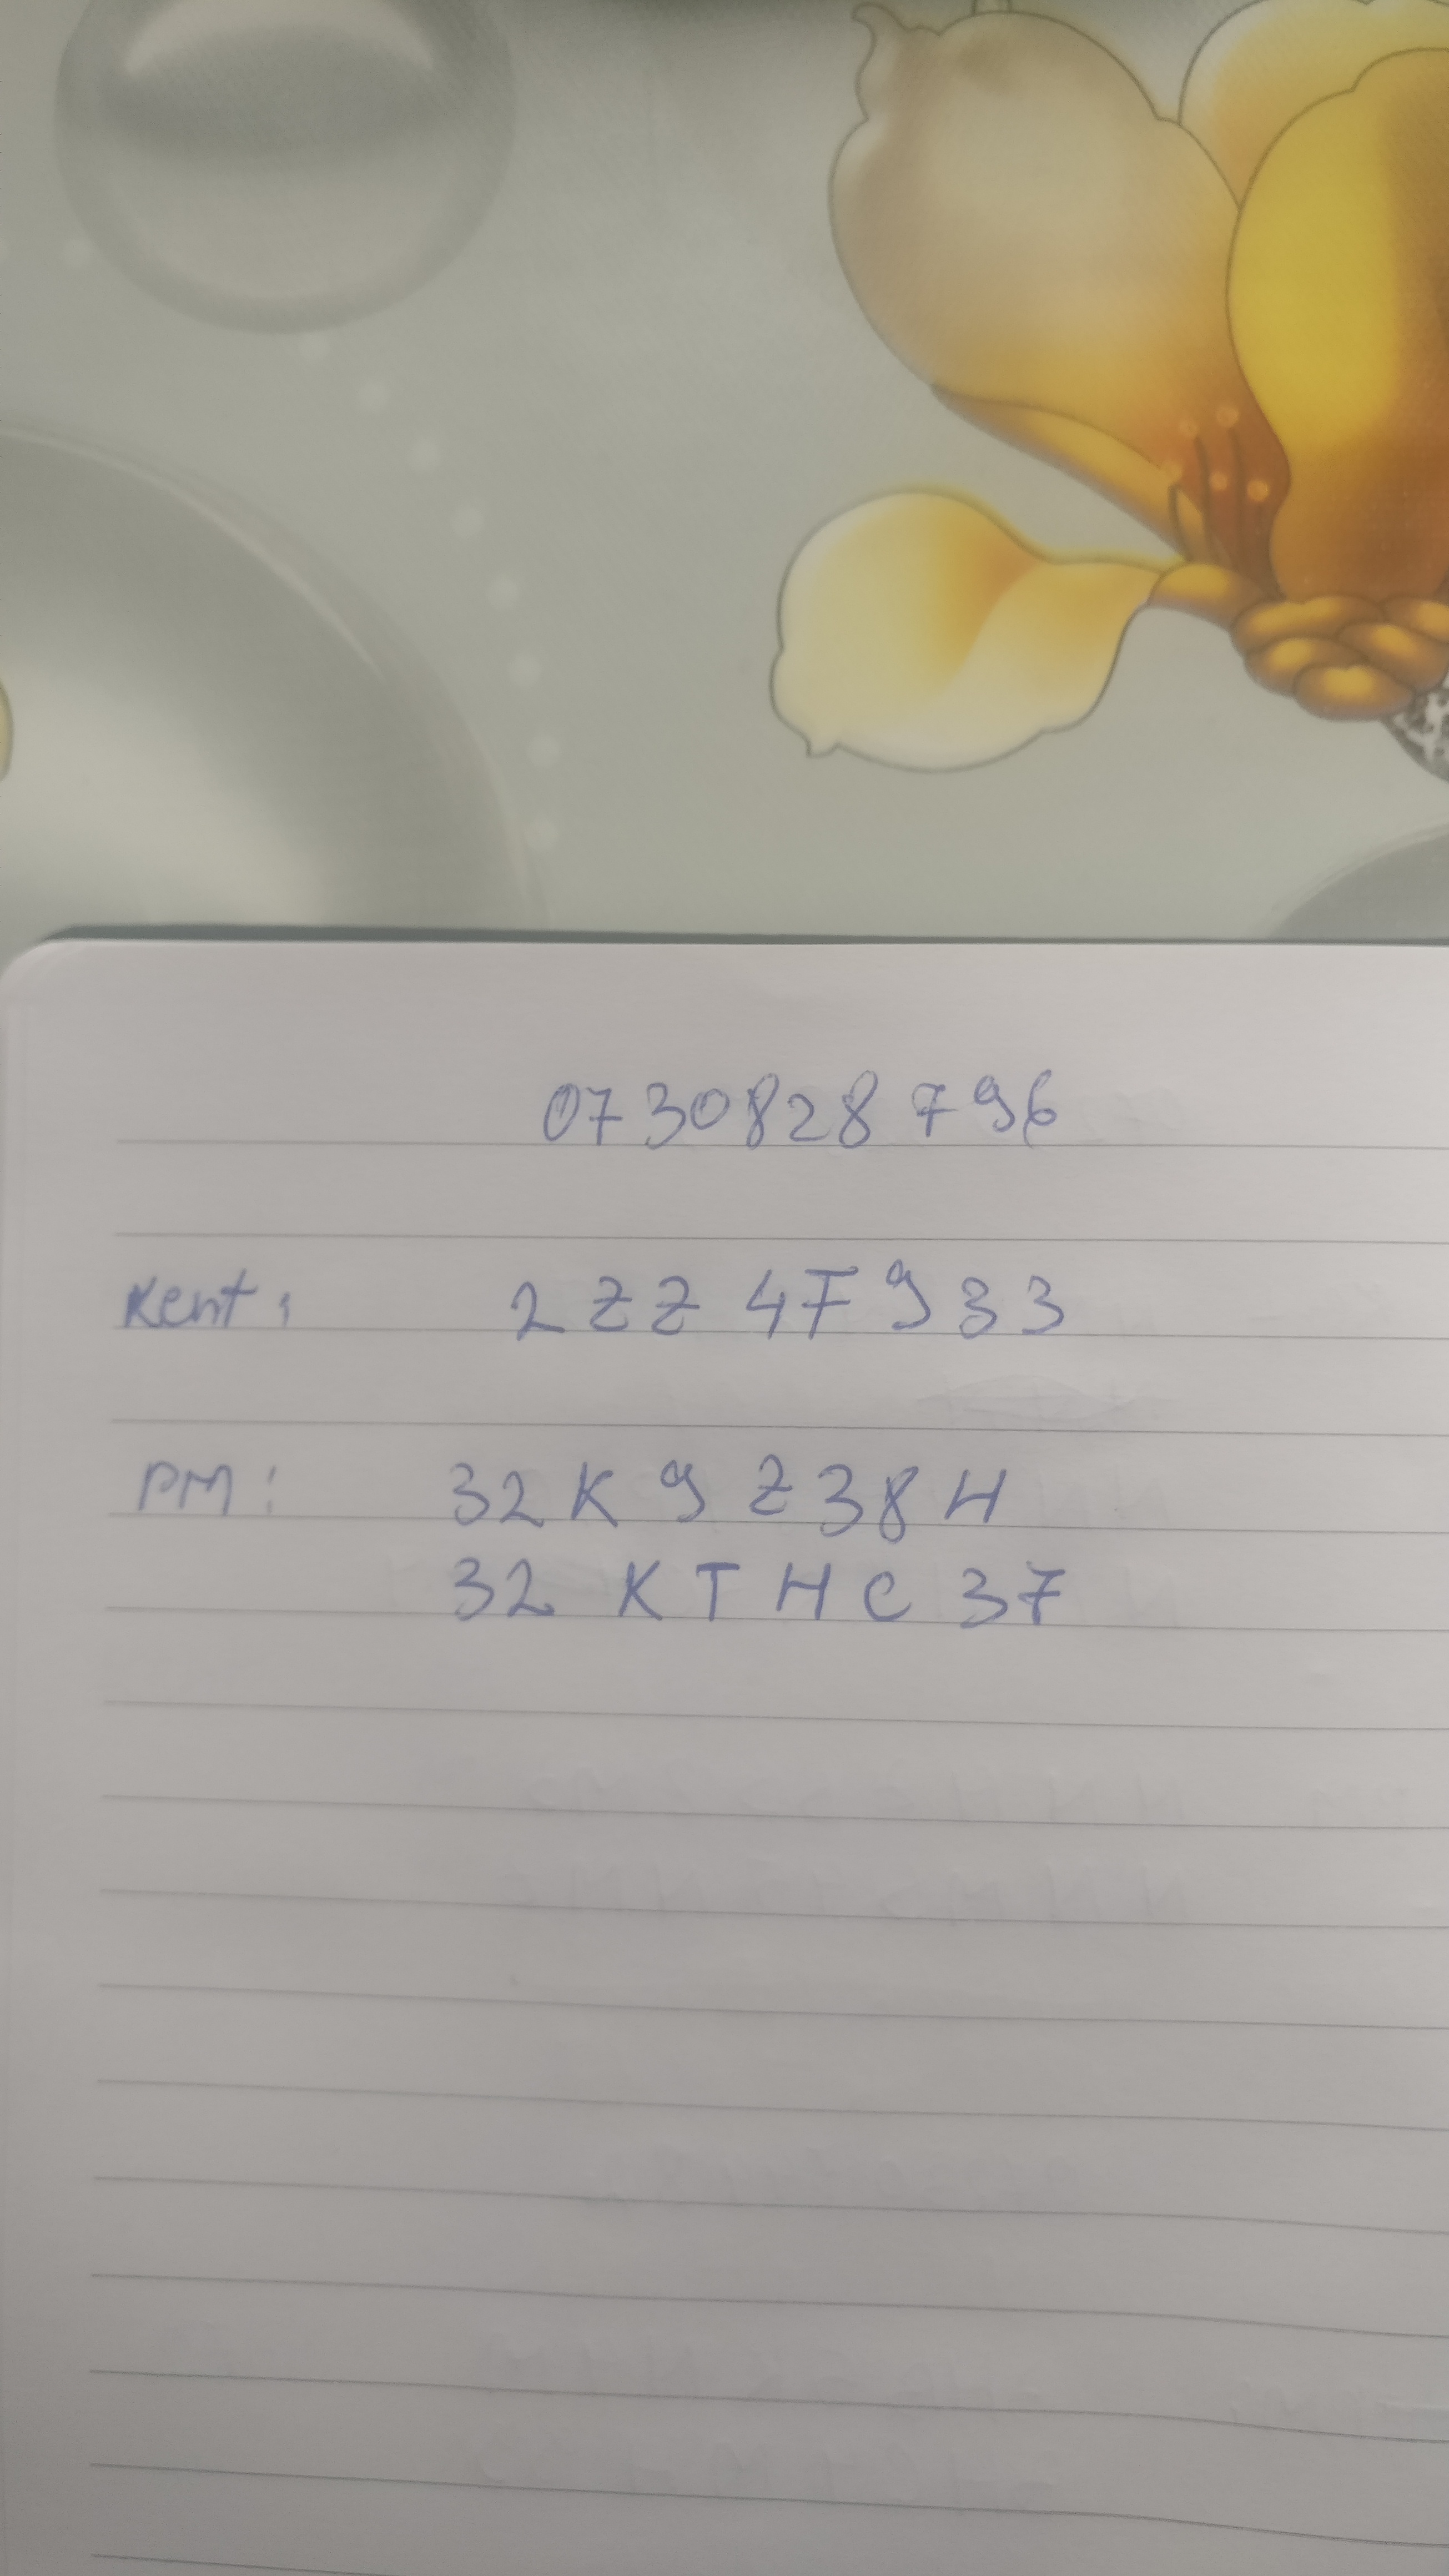 0730828796
Kent: 2ZZ4F933
PM: 32K9Z38H
32KTHC37